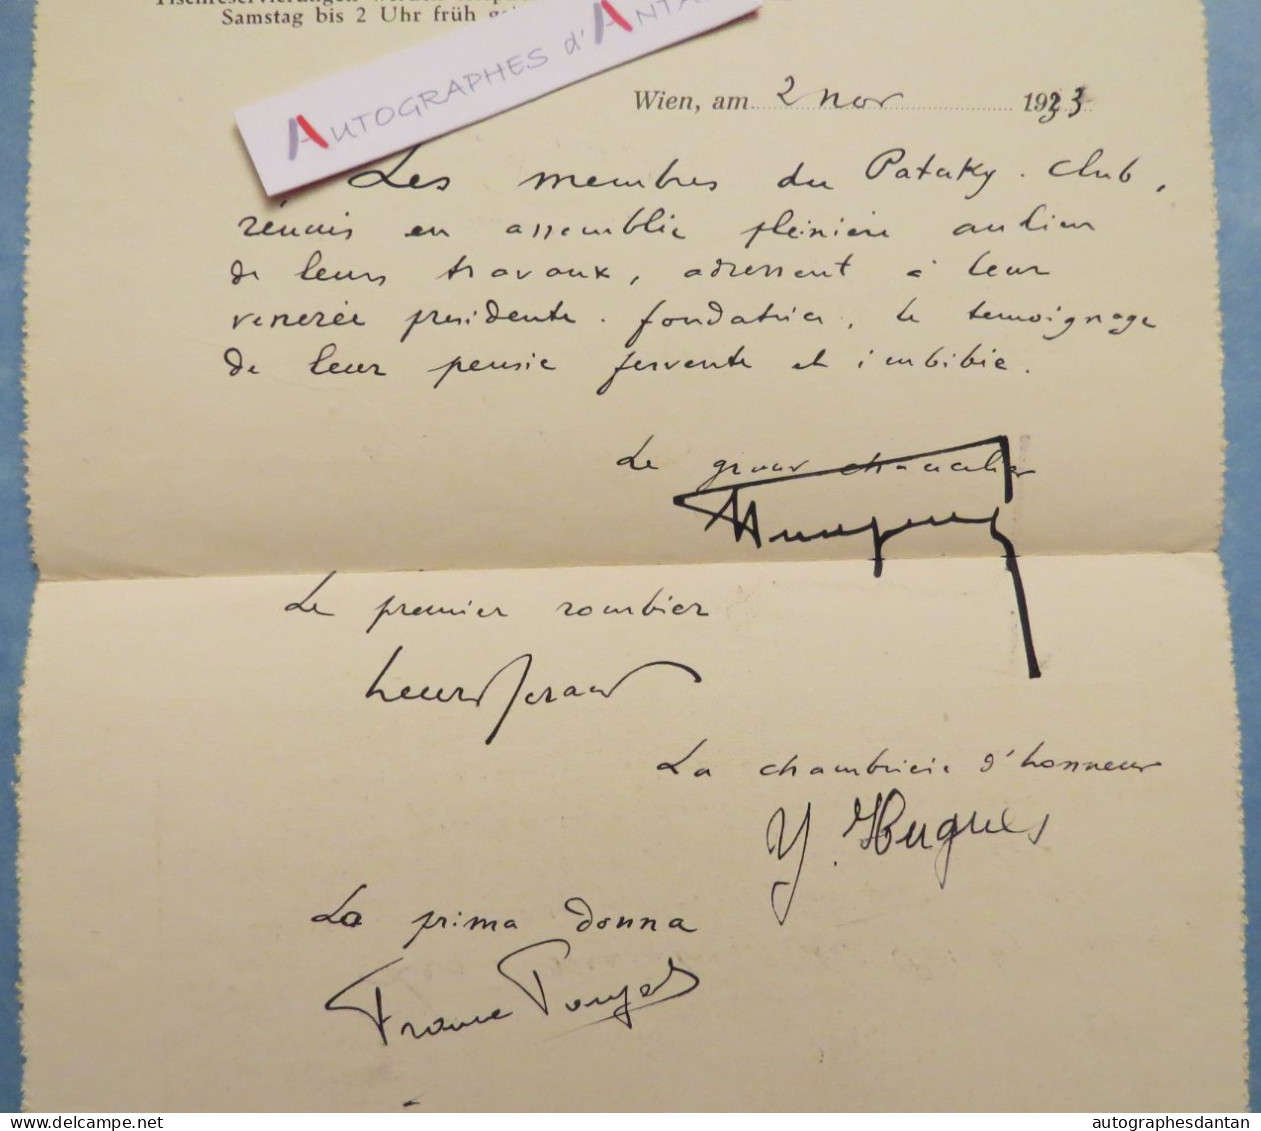 Samstag bis 2 Uhr früh
AUTOGRAPHES d'ANTA
Wien, am 2 nov 1933
Les membres du Pataky-Club,
réunis en assemblée plénière au lieu
de leurs travaux, adressent à leur
vénérée présidente-fondatrice, le témoignage
de leur pensée fervente et imbibée.
Le grand chancelier
Le premier rombier
La chambrière d'honneur
Y. Hugues
La prima donna
France
autographesdantan